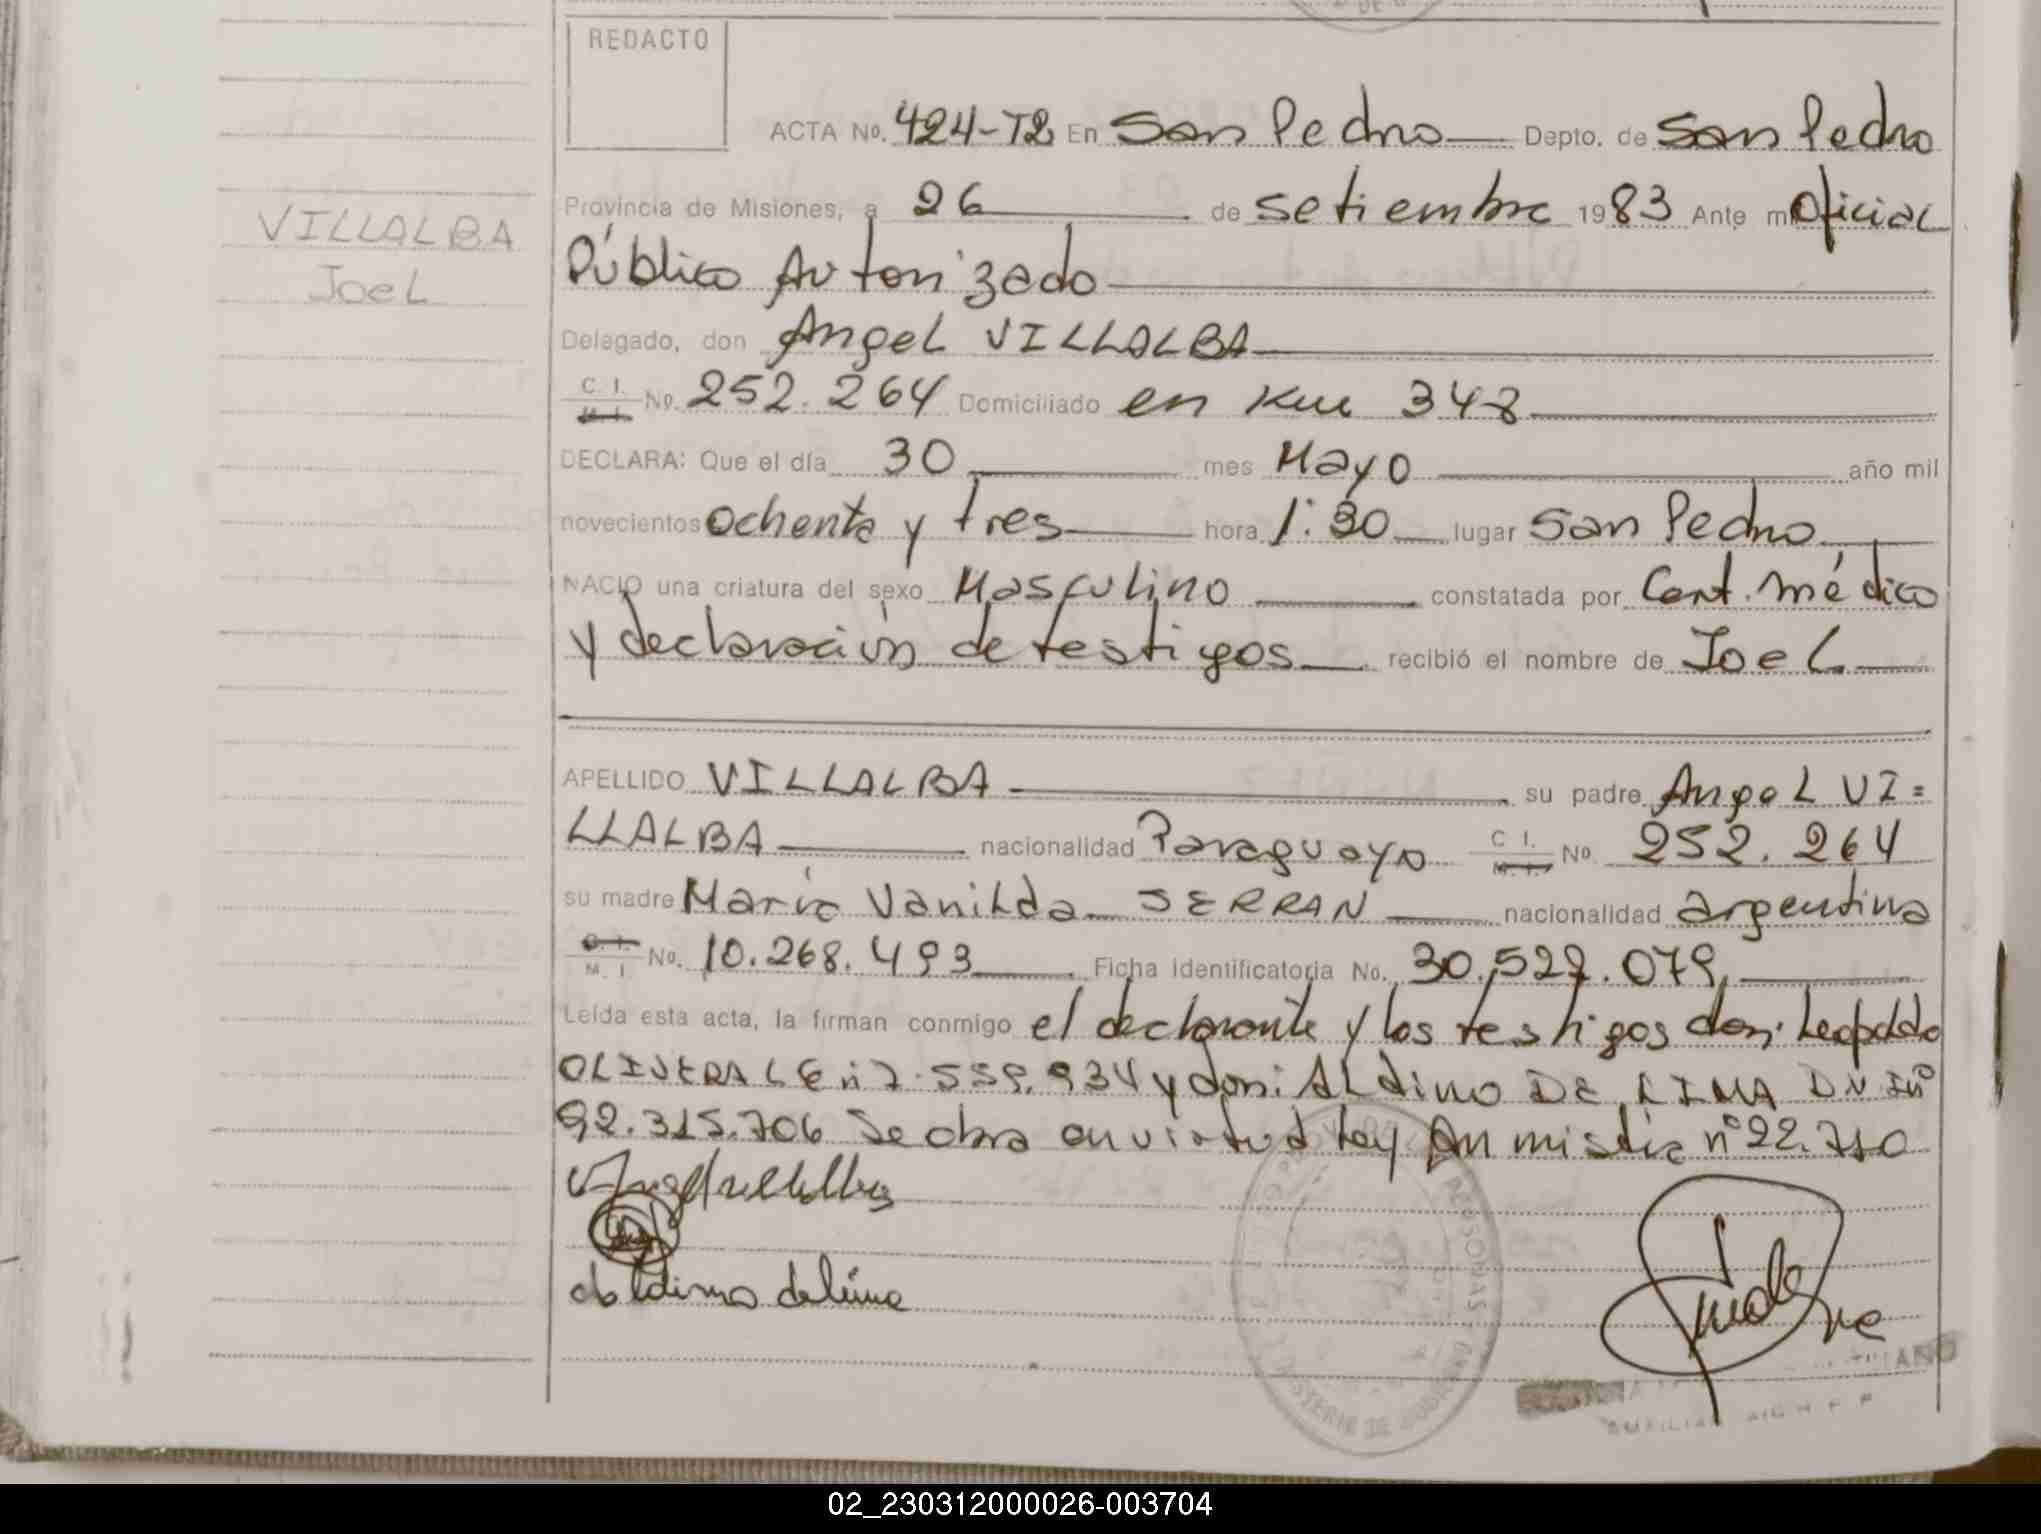 REDACTO
ACTA No. 424-T2 En San Pedro Depto. de San Pedro
VILLALBA
Joel
Provincia de Misiones, a 26 de setiembre 1983 Ante mi Oficial
Público Autorizado
Delegado, don Angel VILLALBA
C. I. No. 252.264 Domiciliado en Km 348
M. I.
DECLARA: Que el día 30 mes Mayo año mil
novecientos ochenta y tres hora 1:30 lugar San Pedro
NACIO una criatura del sexo Masculino constatada por Cert. médico
y declaración de testigos recibió el nombre de Joel
APELLIDO VILLALBA su padre Angel VI=
LLALBA nacionalidad Paraguayo C. I. No. 252.264
M. I.
su madre María Vanilda SERRAN nacionalidad argentina
C. I.
M. I. No. 10.268.493 Ficha Identificatoria No. 30.527.079
Leída esta acta, la firman conmigo el declarante y los testigos don: Leopoldo
OLIVERA LE n 7.559.934 y don: ALdino DE LIMA DNI nº
92.315.706 Se obra en virtud Ley Anmistía nº 22.710
Aldino de lima
MINISTERIO DE GOBIERNO
PERSONAS
AUXILIAR
02_230312000026-003704